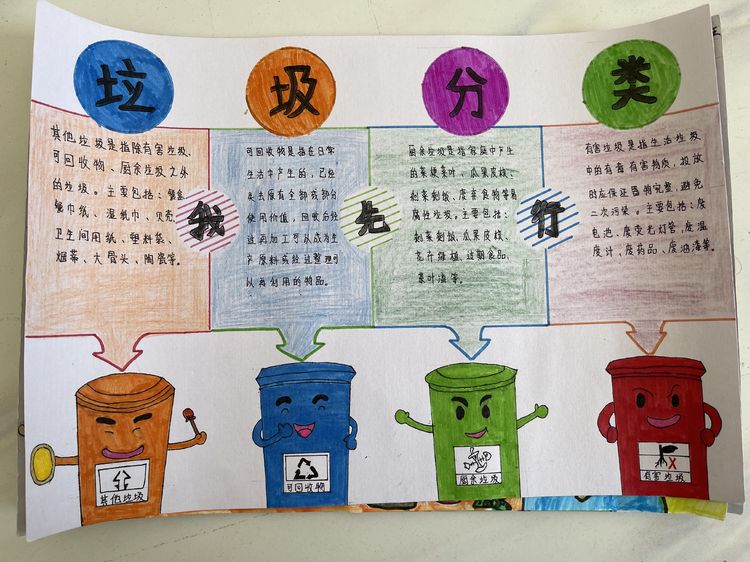 垃圾分类
我先行
其他垃圾是指除有害垃圾、
可回收物、厨余垃圾之外
的垃圾。主要包括：餐盒
餐巾纸、湿纸巾、贝壳、
卫生间用纸、塑料袋、
烟蒂、大骨头、陶瓷等。
可回收物是指在日常
生活中产生的，已经
失去原有全部或部分
使用价值，回收后经
过再加工可以成为生
产原料或经过整理可
以再利用的物品。
厨余垃圾是指家庭中产生
的菜梗菜叶、瓜果皮核、
剩菜剩饭、废弃食物等易
腐性垃圾。主要包括：
剩菜剩饭、瓜果皮核、
花卉绿植、过期食品、
茶叶渣等。
有害垃圾是指生活垃圾
中的有毒有害物质，投放
时应保证器物完整，避免
二次污染。主要包括：废
电池、废荧光灯管、废温
度计、废药品、废油漆等。
其他垃圾
可回收物
厨余垃圾
有害垃圾